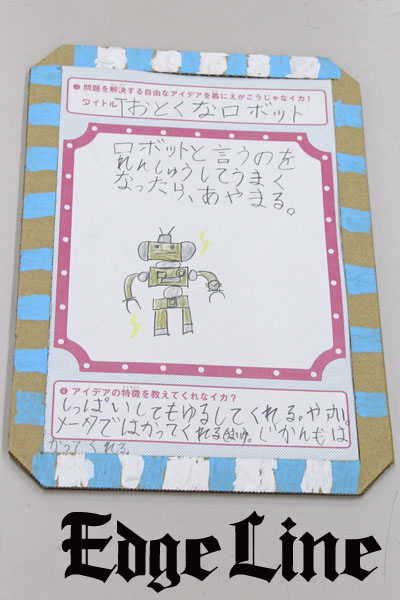 ③ 問題を解決する自由なアイデアを盾にえがこうじゃなイカ!
タイトル「おとくなロボット
ロボットと言うのを
れんしゅうしてうまく
なったら、あやまる。
④ アイデアの特徴を教えてくれなイカ?
しっぱいしてもゆるしてくれる。やホ!
メータではかってくれる じかんもは
かってくれる。
Edge Line